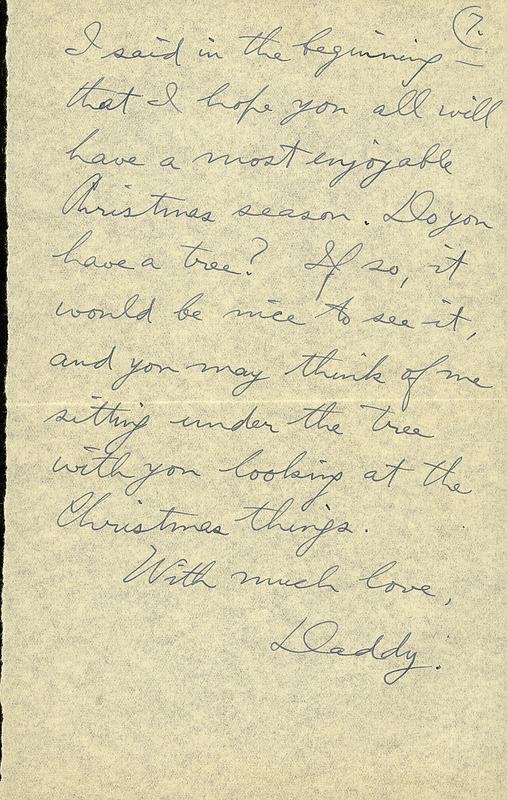 7.
I said in the beginning
that I hope you all will
have a most enjoyable
Christmas season. Do you
have a tree? If so, it
would be nice to see it,
and you may think of me
sitting under the tree
with you looking at the
Christmas things.
With much love,
Daddy.